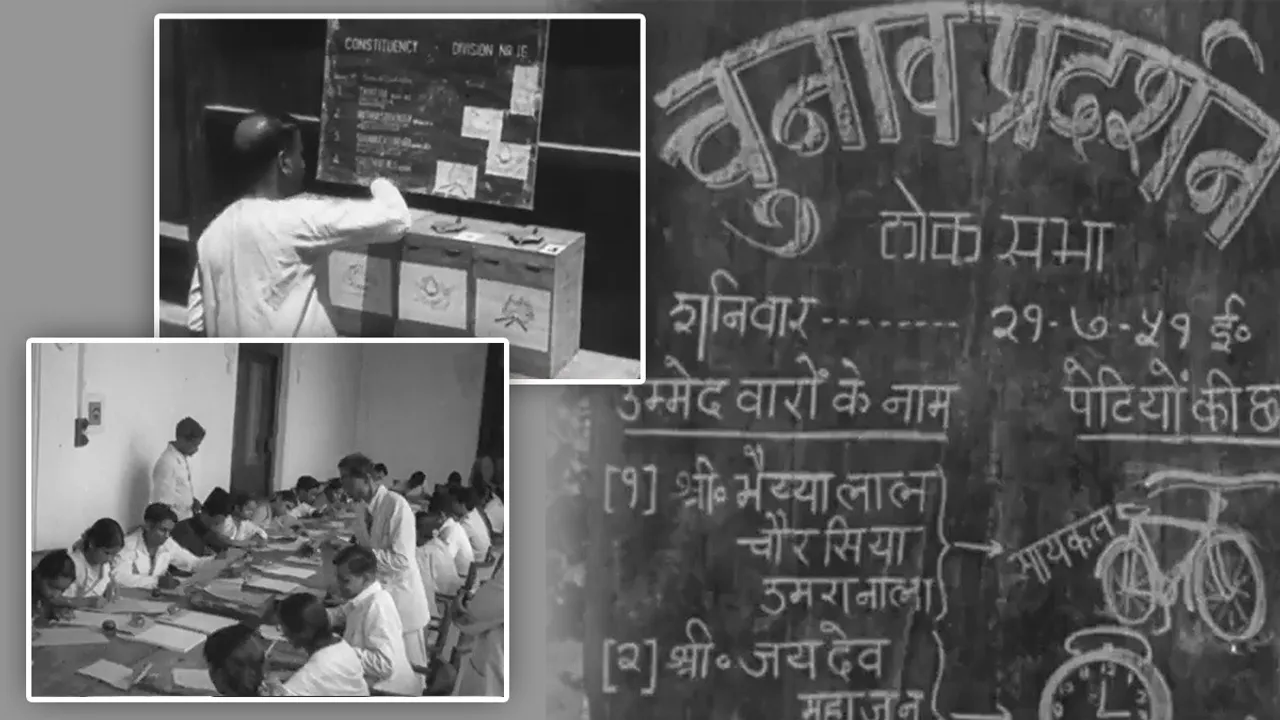 CONSTITUENCY · DIVISION No 16
चुनाव प्रदर्शन
लोक सभा
शनिवार -------- २१-७-५१ ई०
उम्मेदवारों के नाम पेटियों की छा
[१] श्री० भैय्यालाल
चौरसिया
उमरानाला
सायकल
[२] श्री० जयदेव
महाजन